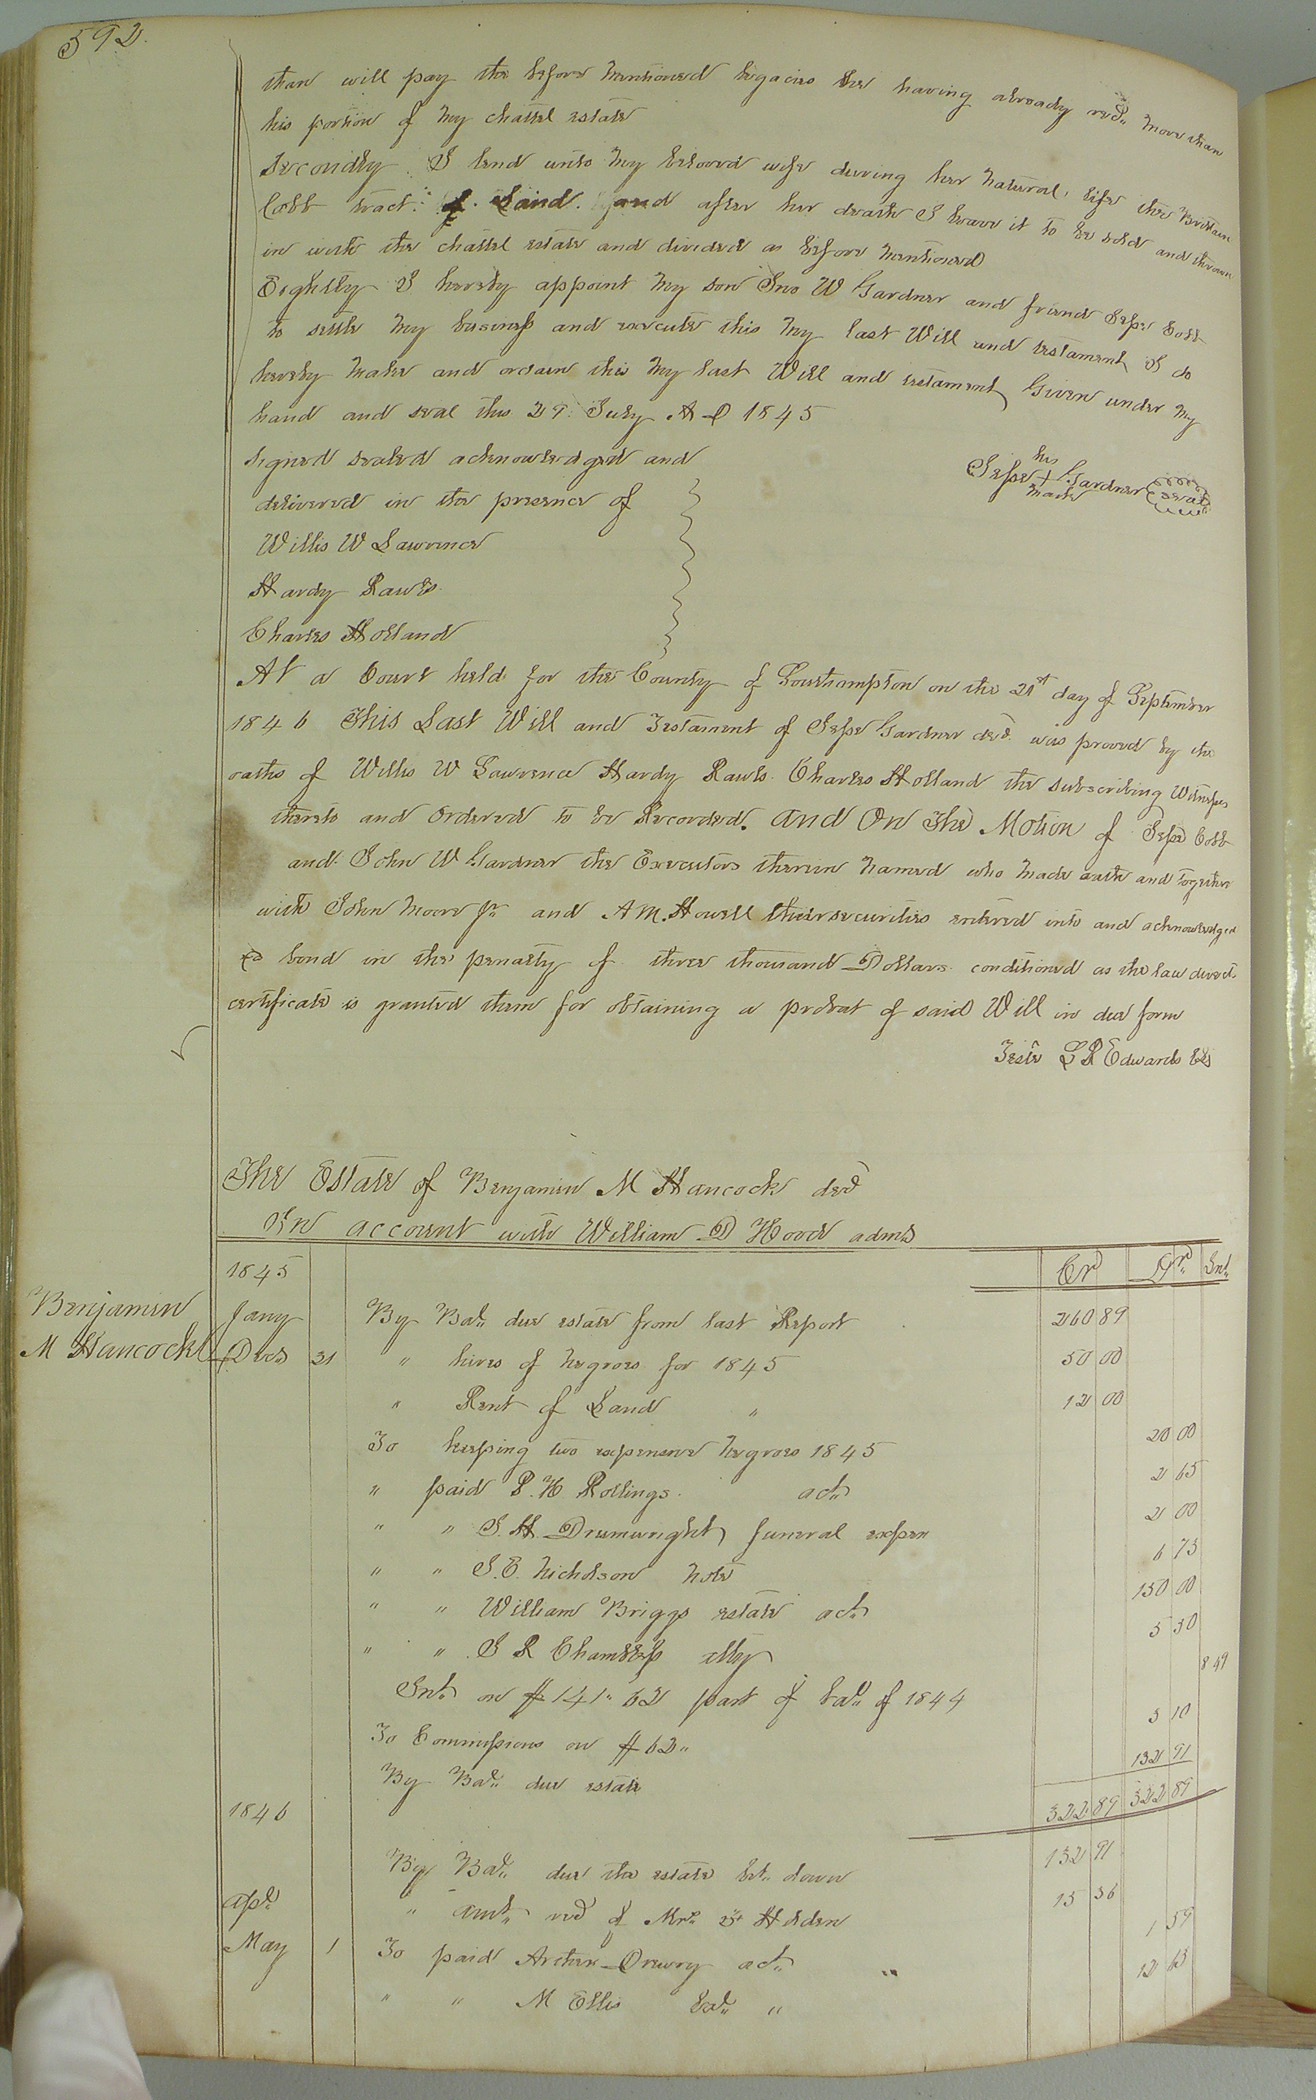 592.
than will pay the before mentioned legacies he having already recd. more than
his portion of my chattel estate
Secondly I lend unto my beloved wife during her natural life the Britain
Cobb tract of Land and after her death I leave it to be sold and thrown
in with the chattel estate and divided as before mentioned
Eighthly I hereby appoint my son Jno W Gardner and friend Jesse Cobb
to settle my business and execute this my last Will and testament I do
hereby make and ordain this my last Will and testament Given under my
hand and seal this 29 July A D 1845
Signed sealed acknowledged and
delivered in the presence of
his
Jesse + Gardner seal
mark
Willis W Lawrence
Hardy Rawls
Charles Holland
At a Court held for the County of Southampton on the 21st day of September
1846 This Last Will and Testament of Jesse Gardner decd. was proved by the
oaths of Willis W Lawrence Hardy Rawls Charles Holland the subscribing Witnesses
thereto and Ordered to be Recorded. And On The Motion of Jesse Cobb
and John W Gardner the Executors therein named who made oath and together
with John Moore Jr and A M. Howell their securities entered into and acknowledged
bond in the penalty of three thousand Dollars conditioned as the law directs
certificate is granted them for obtaining a probat of said Will in due form
Teste L R Edwards Clk
The Estate of Benjamin M Hancock decd
In account with William D Hood admr
1845 Cr Dr Int.
Benjamin
M Hancock
Jany By Bal. due estate from last Report 260 89
Decr 31 " hires of negroes for 1845 50 00
" Rent of Land " 12 00
To keeping two expensive negroes 1845 20 00
" paid P. H Rollings act. 2 65
" " J. H Drumwright funeral expen 2 00
" " J. E. Nicholson note 6 73
" " William Briggs estate act. 150 00
" " J R Chambliss atty 5 50
Int. on $141.62 part of bal. of 1844 8 49
To Commissions on $62.. 3 10
By Bal. due estate 132 91
322 89 322 89
1846
By Bal. due the estate bt. down 132 91
Apl. " amt. recd of Mr. Holden 15 36
May 1 To paid Arthur Drewry act. 1 59
" " M Ellis bal. " 12 63